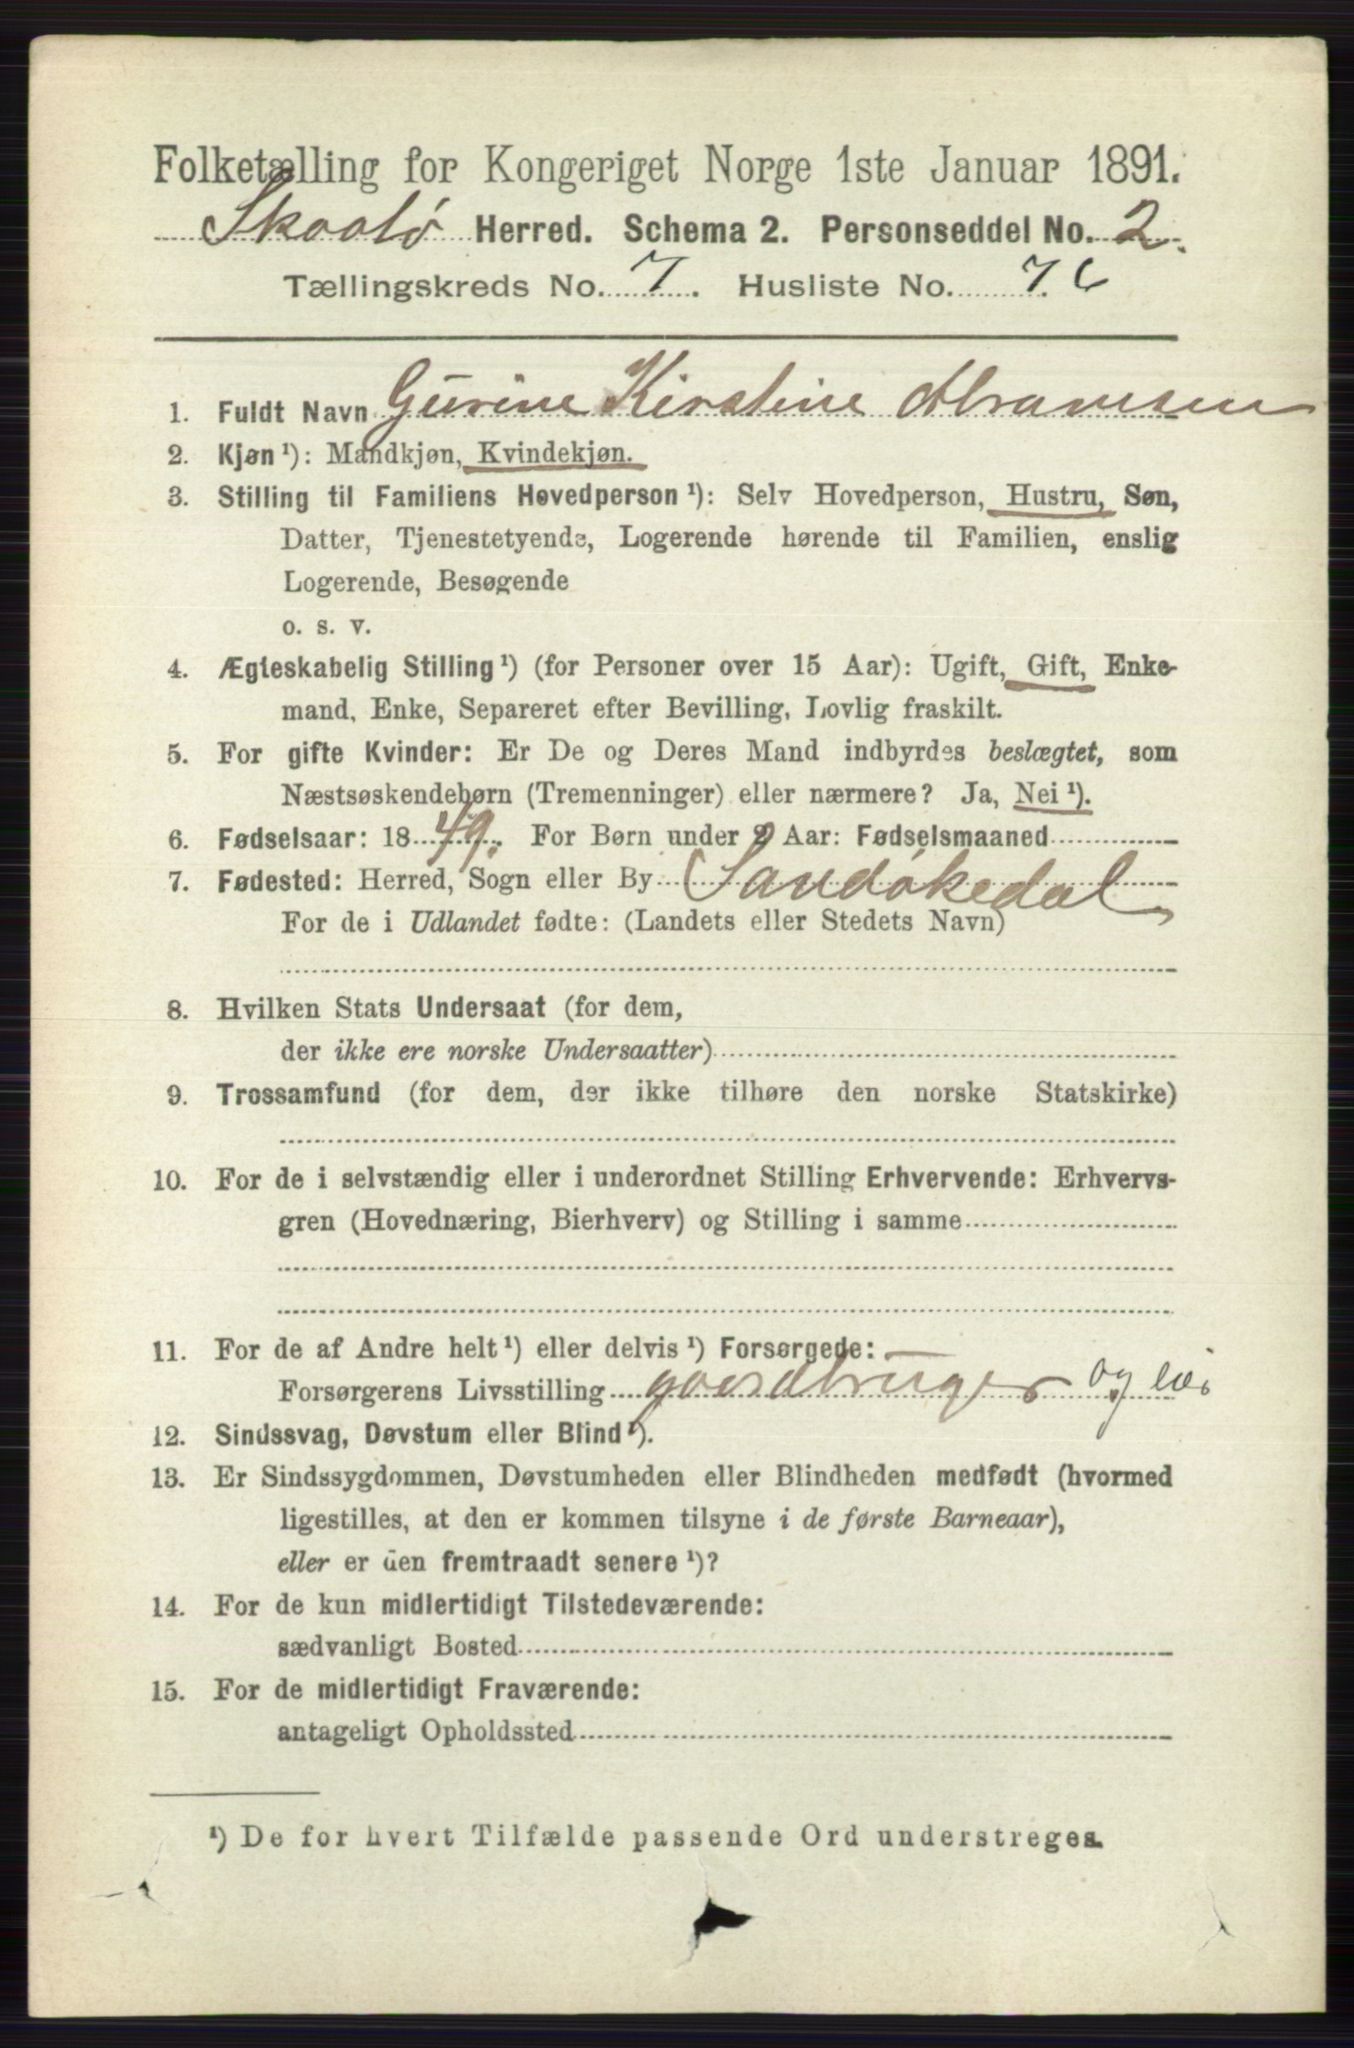 Folketælling for Kongeriget Norge 1ste Januar 1891.
Skaatø Herred. Schema 2. Personseddel No. 2.
Tællingskreds No. 7. Husliste No. 76
1. Fuldt Navn Gurine Kirstine Abramsen
2. Kjøn¹): Mandkjøn, Kvindekjøn.
3. Stilling til Familiens Hovedperson¹): Selv Hovedperson, Hustru, Søn,
Datter, Tjenestetyende, Logerende hørende til Familien, enslig
Logerende, Besøgende
o. s. v.
4. Ægteskabelig Stilling¹) (for Personer over 15 Aar): Ugift, Gift, Enke-
mand, Enke, Separeret efter Bevilling, Lovlig fraskilt.
5. For gifte Kvinder: Er De og Deres Mand indbyrdes beslægtet, som
Næstsøskendebørn (Tremenninger) eller nærmere? Ja, Nei¹).
6. Fødselsaar: 1849. For Børn under 2 Aar: Fødselsmaaned
7. Fødested: Herred, Sogn eller By Sandøkedal
For de i Udlandet fødte: (Landets eller Stedets Navn)
8. Hvilken Stats Undersaat (for dem,
der ikke ere norske Undersaatter)
9. Trossamfund (for dem, der ikke tilhøre den norske Statskirke)
10. For de i selvstændig eller i underordnet Stilling Erhvervende: Erhvervs-
gren (Hovednæring, Bierhverv) og Stilling i samme
11. For de af Andre helt¹) eller delvis¹) Forsørgede:
Forsørgerens Livsstilling gaardbruger og
12. Sindssvag, Døvstum eller Blind¹).
13. Er Sindssygdommen, Døvstumheden eller Blindheden medfødt (hvormed
ligestilles, at den er kommen tilsyne i de første Barneaar),
eller er den fremtraadt senere¹)?
14. For de kun midlertidigt Tilstedeværende:
sædvanligt Bosted
15. For de midlertidigt Fraværende:
antageligt Opholdssted
¹) De for hvert Tilfælde passende Ord understreges.